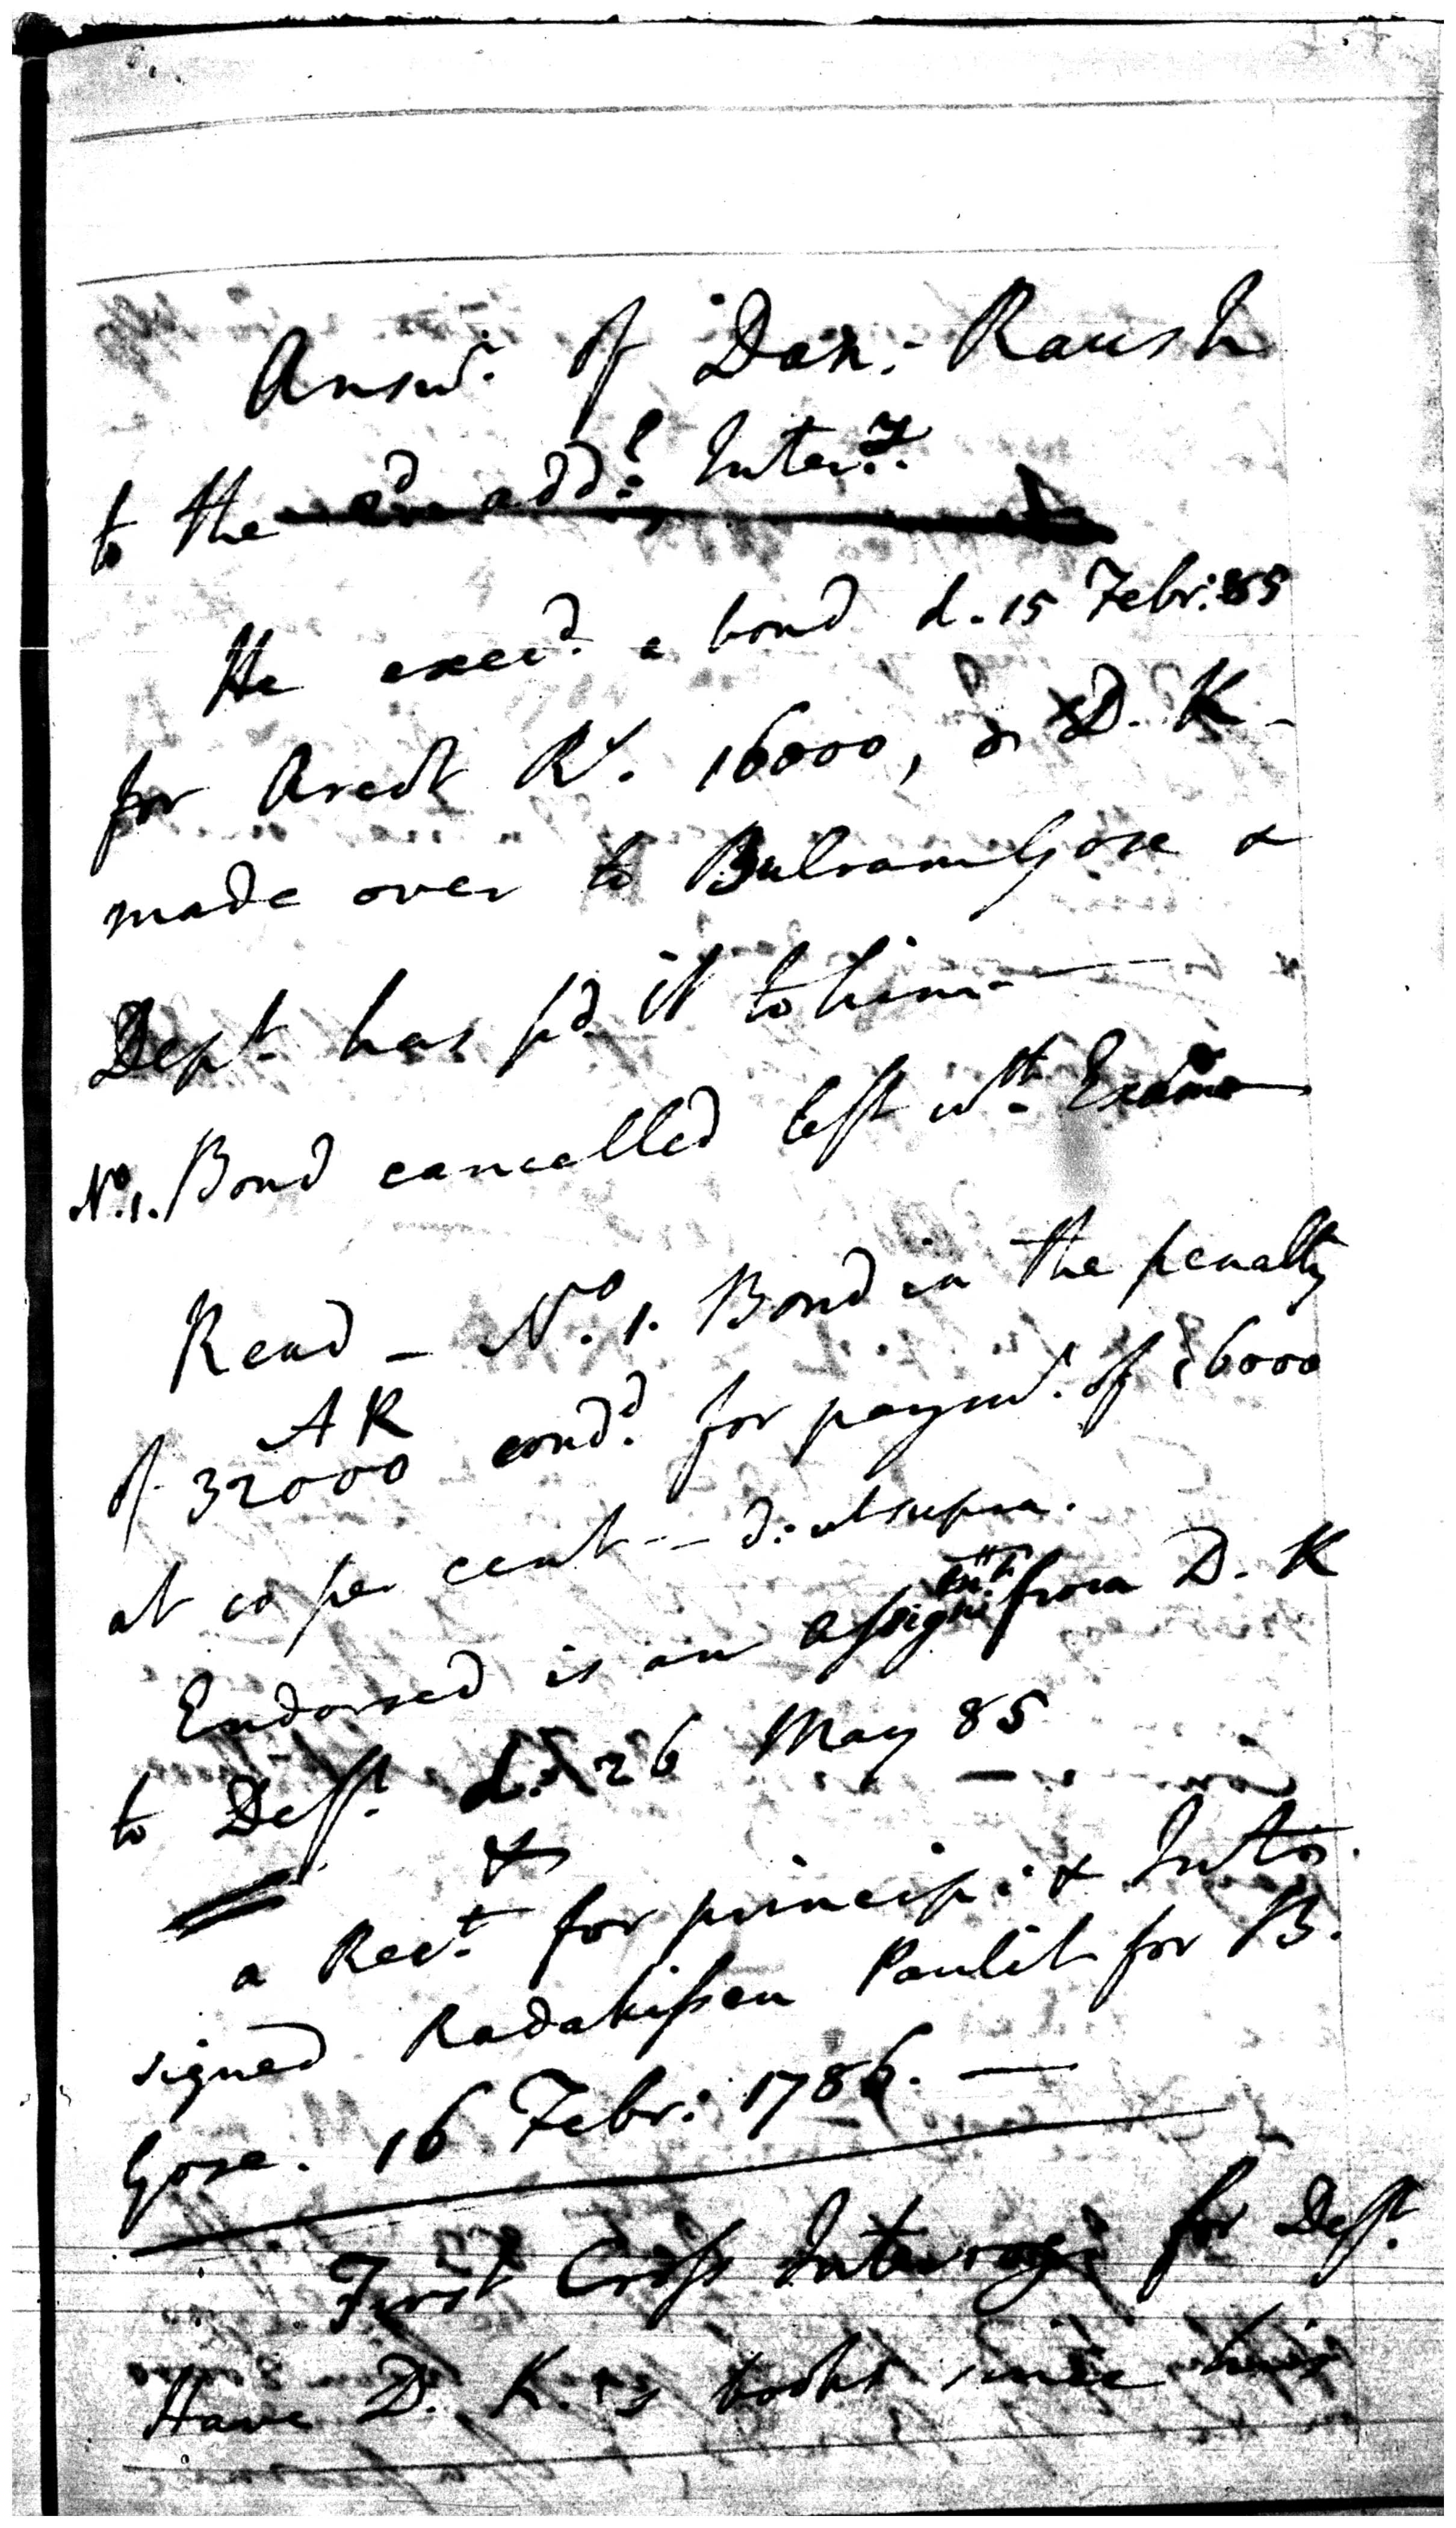 Answr. of Dan. Raush
to the 2d addl. Intery.
He execd. a bond d. 15 Febr: 85
for Arcot Rs. 16000, to D. K
made over to Bulram Gose &
Dept. has pd. it to him —
No. 1. Bond cancelled left wth. Examr
Read — No. 1. Bond in the penalty
AR
of 32000 condd. for paymt. of 16000
at 10 per cent — d: ut supra.
Endorsed is an assignmt. from D. K
to Deft. d. 26 May 85
&
a Rect. for princip: & Intr.
signed Radakissen Paulit for B.
Gose. 16 Febr: 1786. —
First Cross Interrogy for Deft.
Have D. K.'s books since his